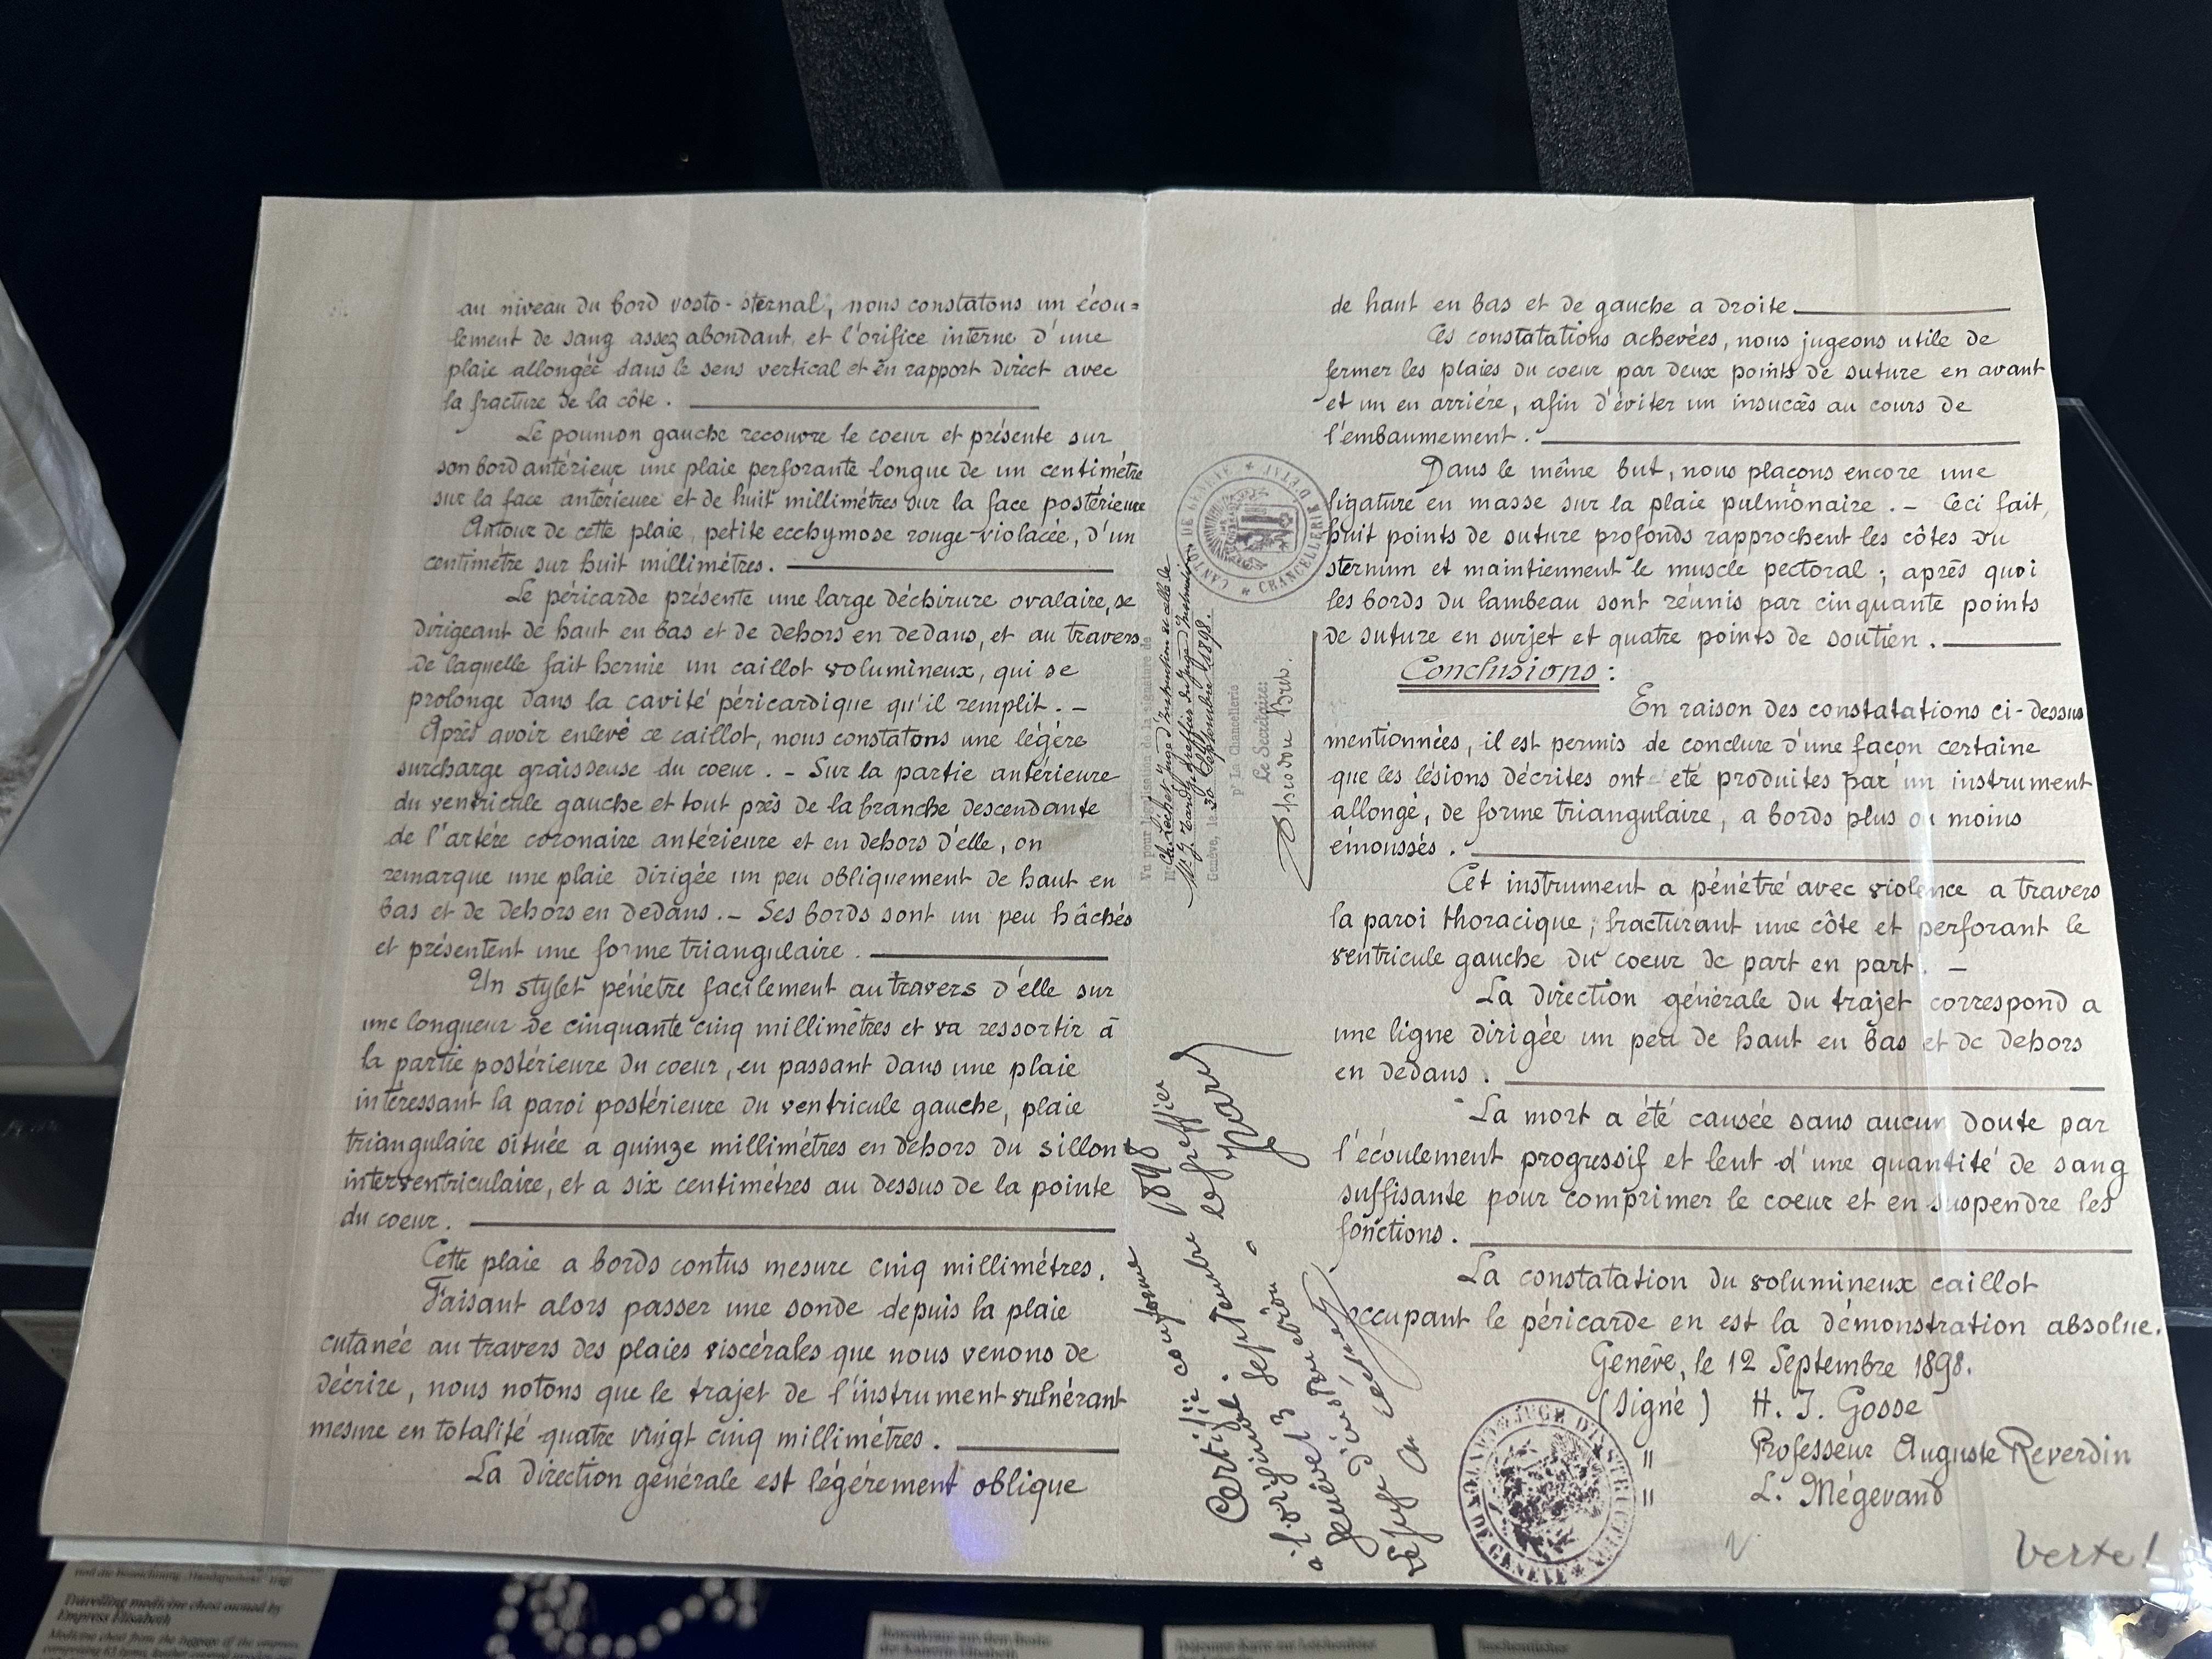 au niveau du bord vosto-sternal, nous constatons un écou=
lement de sang assez abondant, et l'orifice interne d'une
plaie allongée dans le sens vertical et en rapport direct avec
la fracture de la côte.
Le poumon gauche recouvre le coeur et présente sur
son bord antérieur une plaie perforante longue de un centimètre
sur la face antérieure et de huit millimètres sur la face postérieure
Autour de cette plaie, petite ecchymose rouge-violacée, d'un
centimètre sur huit millimètres.
Le péricarde présente une large déchirure ovalaire, se
dirigeant de haut en bas et de dehors en dedans, et au travers
de laquelle fait hernie un caillot volumineux, qui se
prolonge dans la cavité péricardique qu'il remplit. –
Après avoir enlevé ce caillot, nous constatons une légère
surcharge graisseuse du coeur. – Sur la partie antérieure
du ventricule gauche et tout près de la branche descendante
de l'artère coronaire antérieure et en dehors d'elle, on
remarque une plaie dirigée un peu obliquement de haut en
bas et de dehors en dedans. – Ses bords sont un peu hâchés
et présentent une forme triangulaire.
Un stylet pénètre facilement au travers d'elle sur
une longueur de cinquante cinq millimètres et va ressortir à
la partie postérieure du coeur, en passant dans une plaie
intéressant la paroi postérieure du ventricule gauche, plaie
triangulaire située a quinze millimètres en dehors du sillon
interventriculaire, et a six centimètres au dessus de la pointe
du coeur.
Cette plaie a bords contus mesure cinq millimètres.
Faisant alors passer une sonde depuis la plaie
cutanée au travers des plaies viscérales que nous venons de
décrire, nous notons que le trajet de l'instrument vulnérant
mesure en totalité quatre vingt cinq millimètres.
La direction générale est légèrement oblique
Vu pour légalisation de la signature de
Genève, le 30 Septembre 1898.
pr La Chancellerie
Le Secrétaire:
CANTON DE GENÈVE * CHANCELLERIE D'ÉTAT *
Certifié conforme
à l'original.
Genève 13 Septembre 1898
Le Juge d'instruction
Le greffier
de haut en bas et de gauche a droite.
Ces constatations achevées, nous jugeons utile de
fermer les plaies du coeur par deux points de suture en avant
et un en arrière, afin d'éviter un insuccès au cours de
l'embaumement.
Dans le même but, nous plaçons encore une
ligature en masse sur la plaie pulmonaire. – Ceci fait,
huit points de suture profonds rapprochent les côtes du
sternum et maintiennent le muscle pectoral; après quoi
les bords du lambeau sont réunis par cinquante points
de suture en surjet et quatre points de soutien.
Conclusions:
En raison des constatations ci-dessus
mentionnées, il est permis de conclure d'une façon certaine
que les lésions décrites ont été produites par un instrument
allongé, de forme triangulaire, a bords plus ou moins
émoussés.
Cet instrument a pénétré avec violence a travers
la paroi thoracique, fracturant une côte et perforant le
ventricule gauche du coeur de part en part. –
La direction générale du trajet correspond a
une ligne dirigée un peu de haut en bas et de dehors
en dedans.
La mort a été causée sans aucun doute par
l'écoulement progressif et lent d'une quantité de sang
suffisante pour comprimer le coeur et en suspendre les
fonctions.
La constatation du volumineux caillot
occupant le péricarde en est la démonstration absolue.
Genève, le 12 Septembre 1898.
(Signé) H. J. Gosse
" Professeur Auguste Reverdin
" L. Mégevand
verte!
Travelling medicine chest owned by
Empress Elisabeth
Rosenkranz aus dem Besitz
der Kaiserin Elisabeth